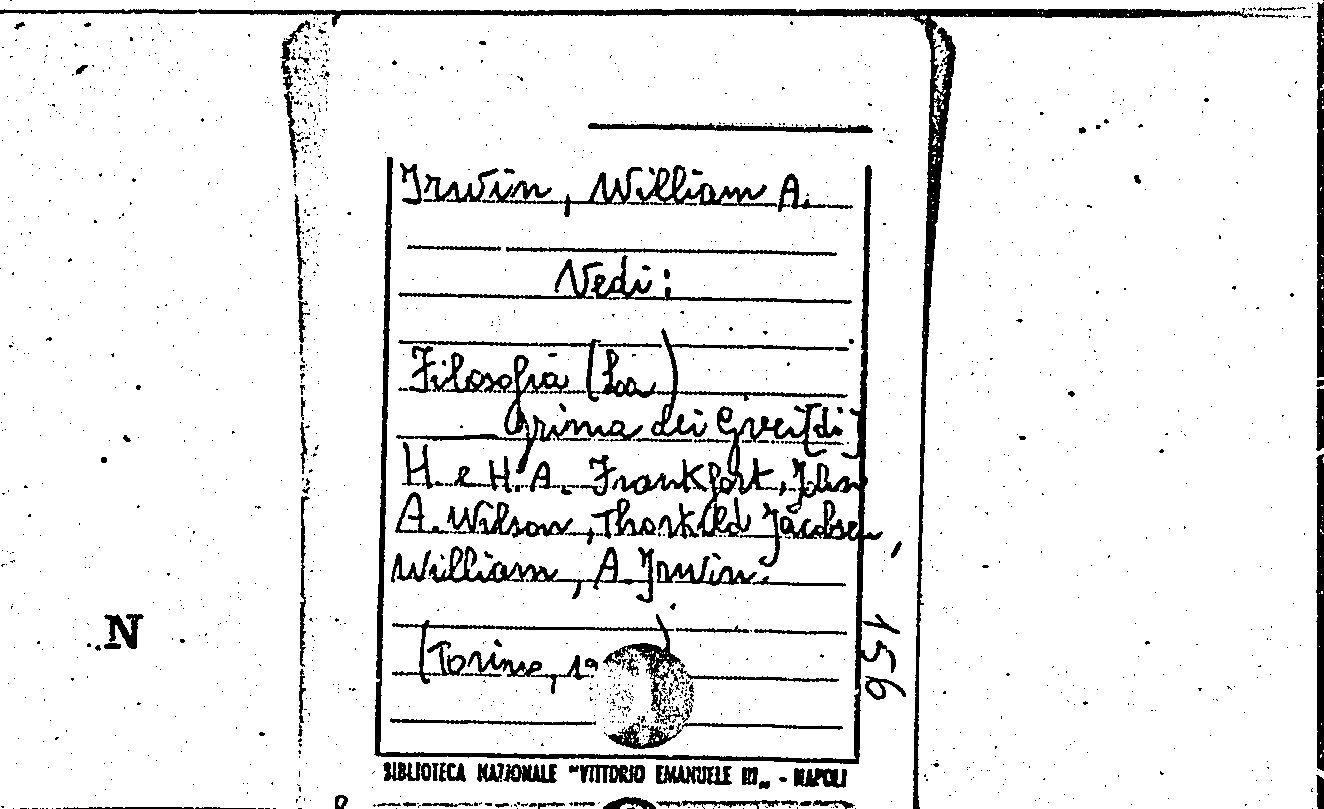 Irwin, William A.
Vedi:
Filosofia (La)
prima dei Greci [di]
H. e H. A. Frankfort, John
A. Wilson, Thorkild Jacobsen,
William, A. Irwin.
(Torino, 19 )
156
N
BIBLIOTECA NAZIONALE "VITTORIO EMANUELE III„ - NAPOLI